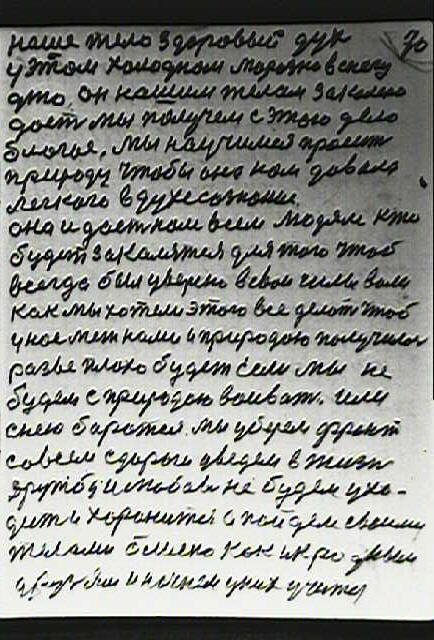 наше тело здоровый дух 70
у этом холодном морозно в снегу
это, он нашим телам закалка
даст мы получем с этого дело
благое, мы научимся просить
природу чтобы она нам давала
легкого в духе сознание
она и даст нам всем людям кто
будет закалятся для того чтоб
всегда был уверено в свои силы воли
как мы хотели этого все делат чтоб
у нас меж нами и природою получилос
разве плохо будет если мы не
будем с природою воиват. или
с нею боротся. мы уберем фронт
совсем с дороги уведем в жизн
дружбу и любов не будем ухо-
дит и хоронится а пойдем своими
телами близко как к родным
друзьям и начнем у них учится